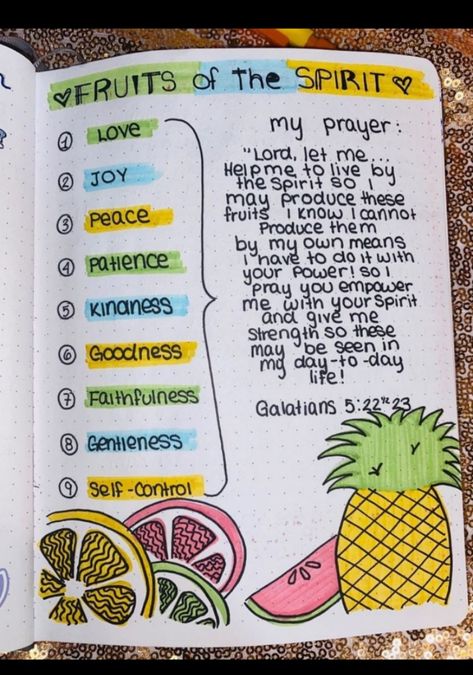 ♡FRUITS of the SPIRIT♡
1 Love
2 JOY
3 Peace
4 Patience
5 Kindness
6 Goodness
7 Faithfulness
8 Gentleness
9 Self-Control
my prayer:
"Lord, let me...
Help me to live by
the Spirit so I
may produce these
fruits I know I cannot
Produce them
by my own means
I have to do it with
your Power! so I
pray you empower
me with your Spirit
and give me
Strength so these
may be seen in
my day-to-day
life!
Galatians 5:22-23